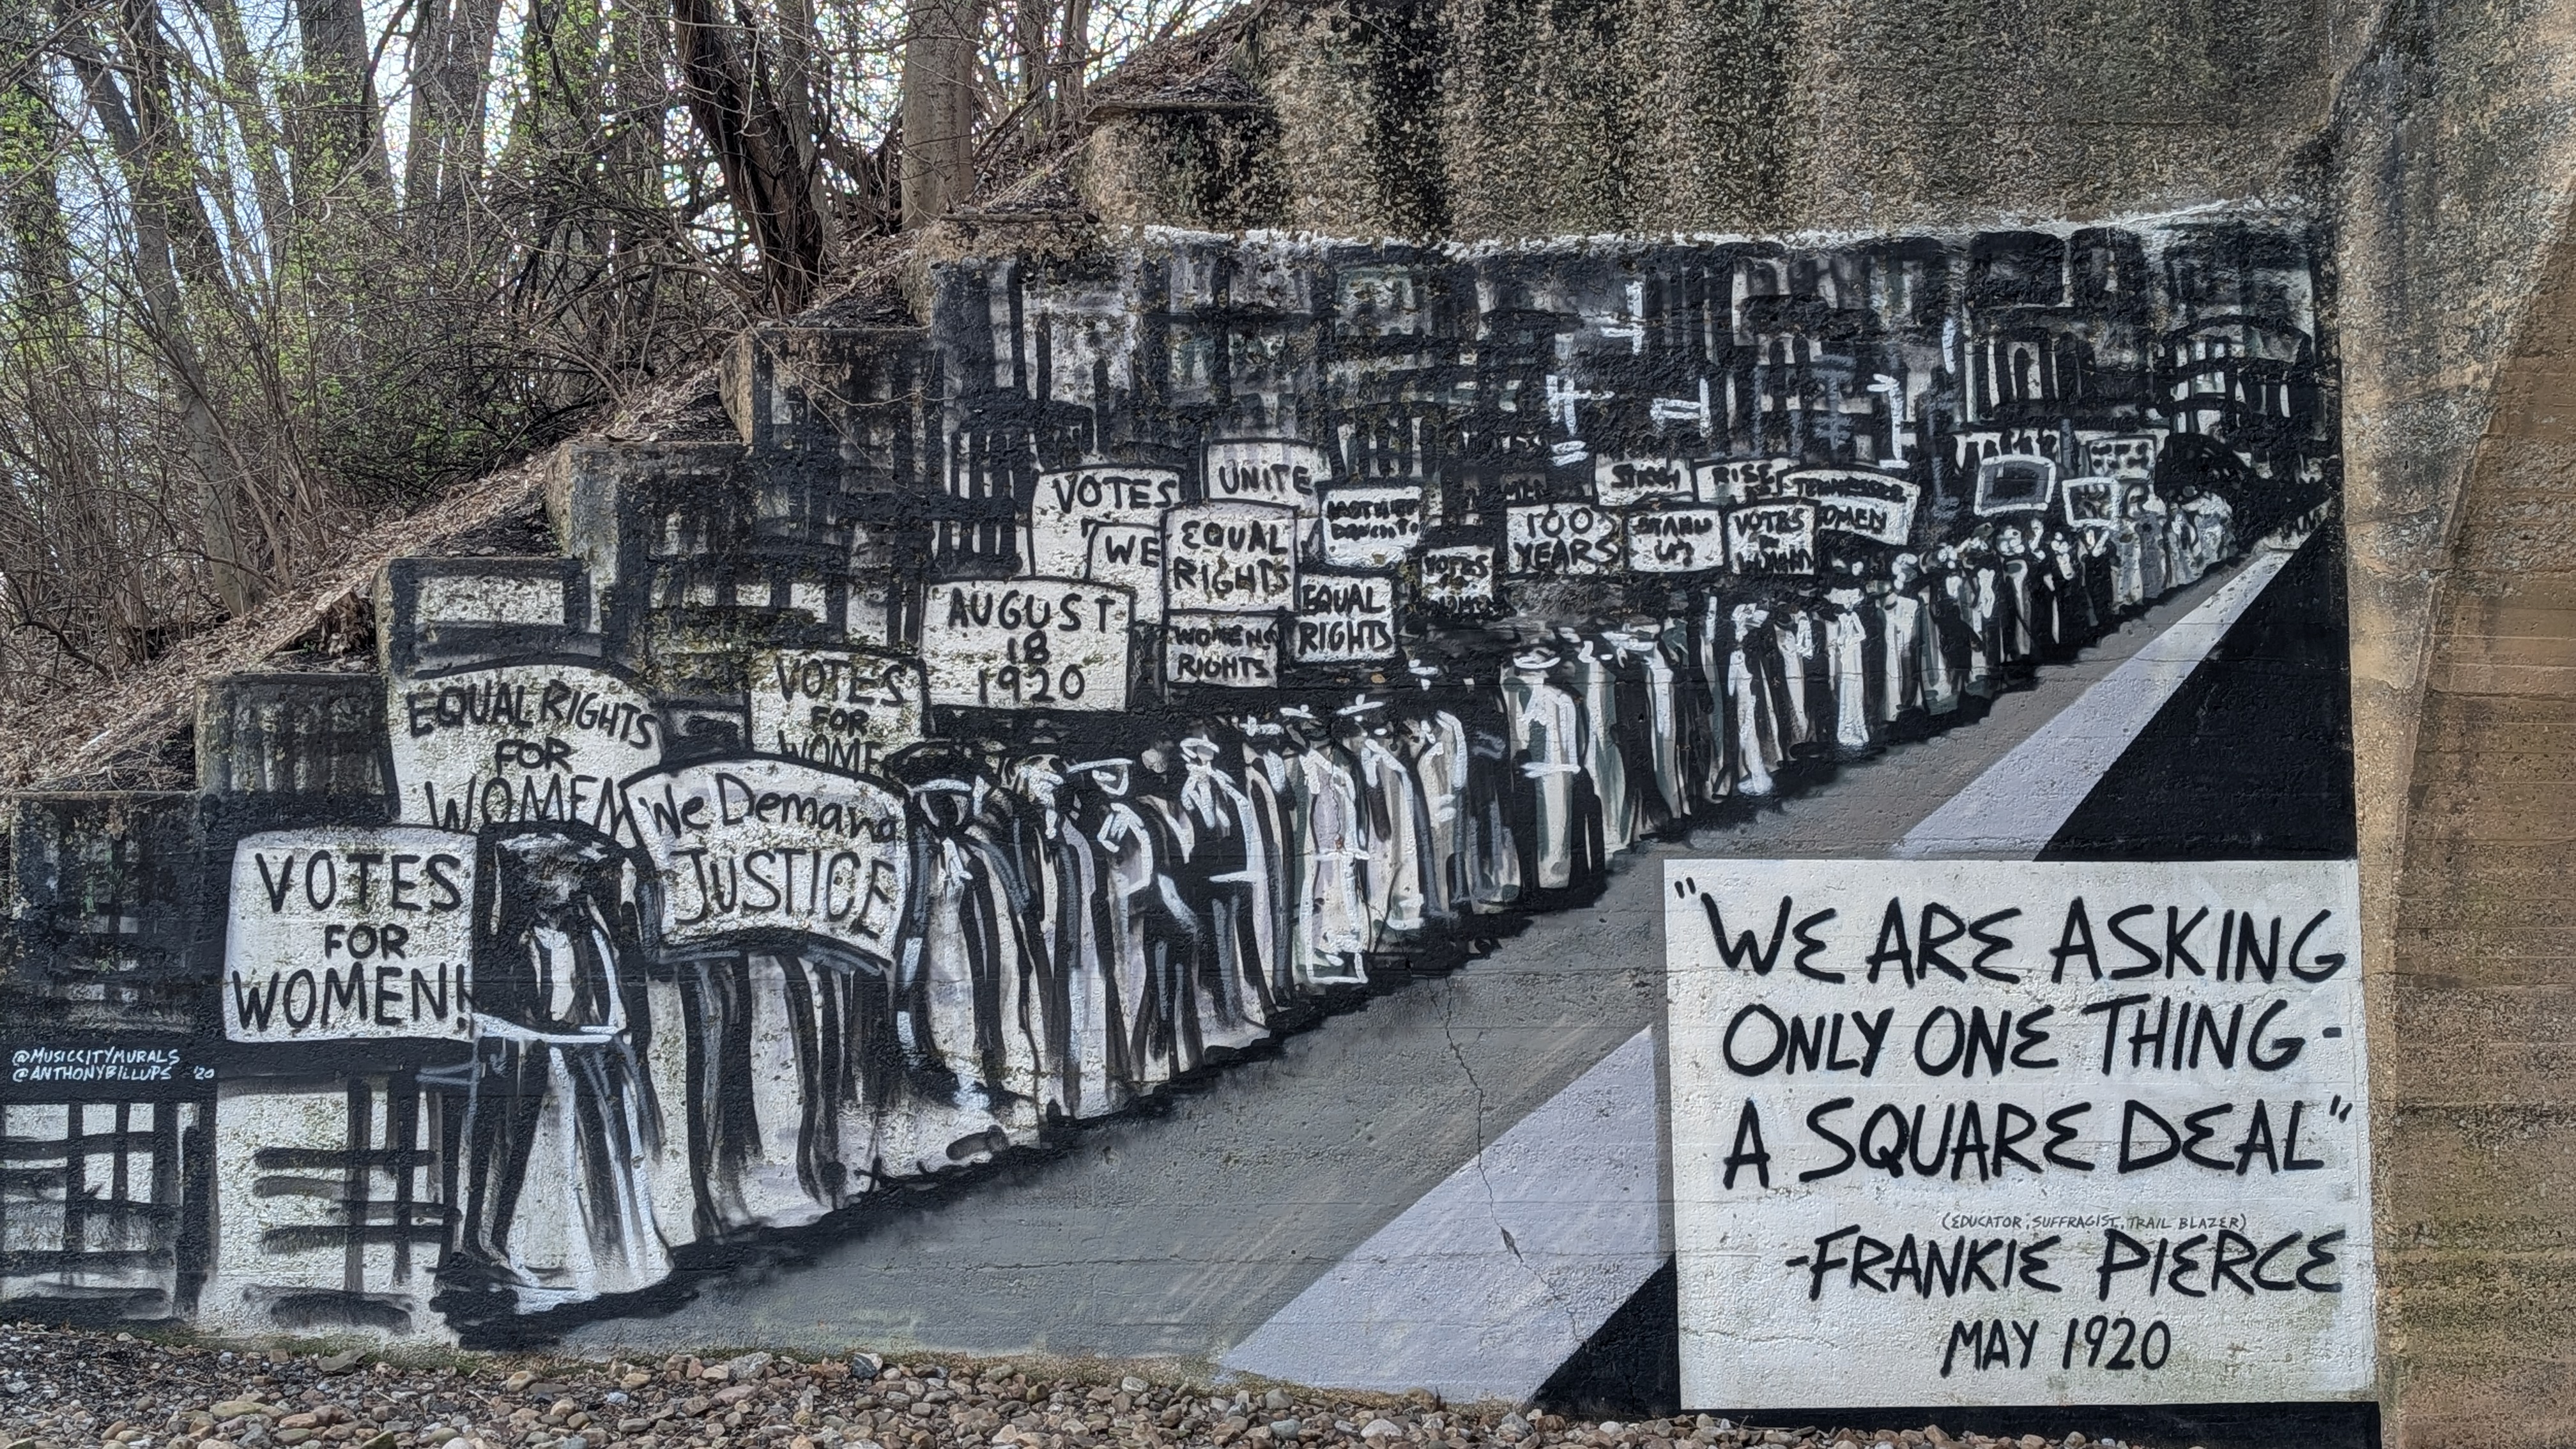 VOTES
UNITE
WE
EQUAL
RIGHTS
100
YEARS
STAND
UP
RISE
TENNESSEE
VOTES
EQUAL
RIGHTS
WOMENS
RIGHTS
VOTES
AUGUST
18
1920
VOTES
FOR
WOME
EQUAL RIGHTS
FOR
WOMEN
We Demand
JUSTICE
VOTES
FOR
WOMEN!
@MUSICCITYMURALS
@ANTHONYBILLUPS '20
"WE ARE ASKING
ONLY ONE THING-
A SQUARE DEAL"
(EDUCATOR, SUFFRAGIST, TRAIL BLAZER)
-FRANKIE PIERCE
MAY 1920